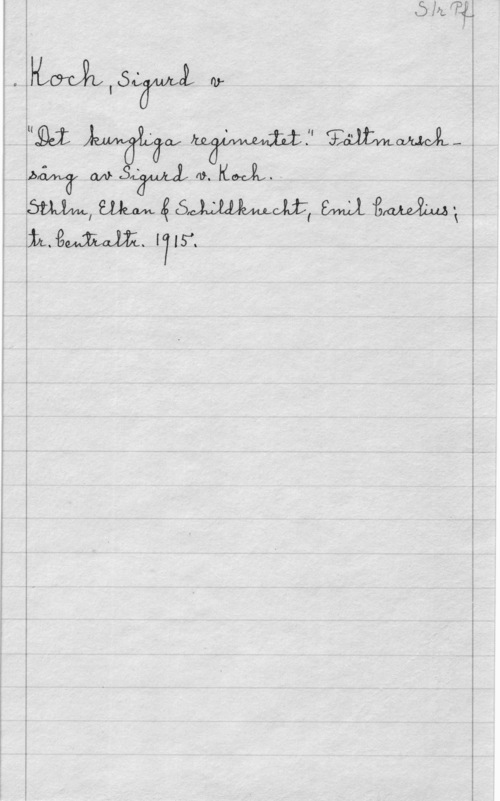 S/r Pf
Koch, Sigurd v
"Det kungliga regimentet." Fältmarsch-
sång av Sigurd v. Koch.
Sthlm, Elkan & Schildknecht, Emil Carelius;
tr. Centraltr. 1915.